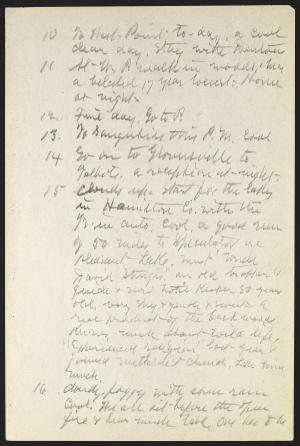 10 To West-Point- to-day, a cool
clear day. Stay with Denton
11 At W. P. walk in woods, hear
a belated 17 year locust. Home
at night-
12. Fine day. Go to R
13. To Saugerties this P.M. Cool
14 Go on to Gloversville to
Talbots, a reception at-night-
15 Clouds up- start for the lakes
in Hamilton Co. with the
in auto, Cool, a good run
of 50 miles to Speculator on
Pleasant Lake, meet
David Sturges, an old
guide & now hotel keeper 80 years
old, very &
real product of the backwoods
knows much about wild life,
"Experienced religion" last year &
joined methodist church, Like him
much.
16. Cloudy, foggy with some rain
Cool. We all sit-before the open
fire & hear much talk,